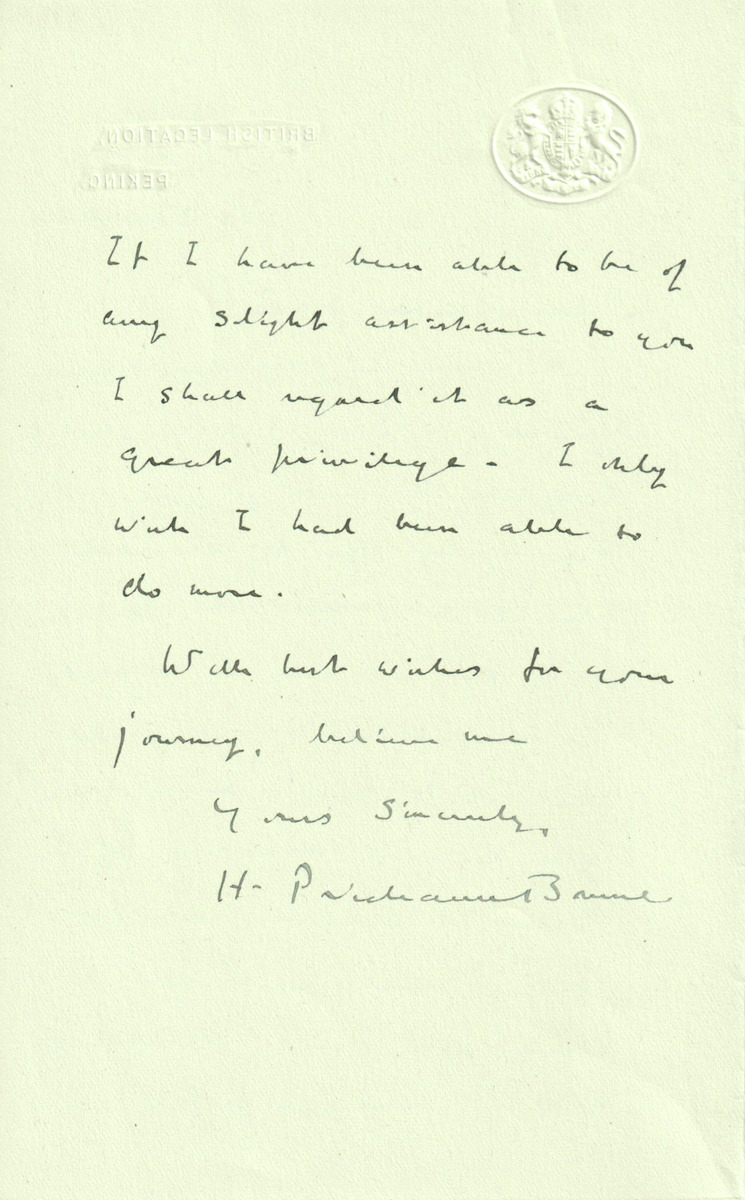 BRITISH LEGATION,
PEKING.
If I have been able to be of
any slight assistance to you
I shall regard it as a
great privilege - I only
wish I had been able to
do more.
With best wishes for your
journey, believe me
Yours Sincerely,
H. Prideaux-Brune